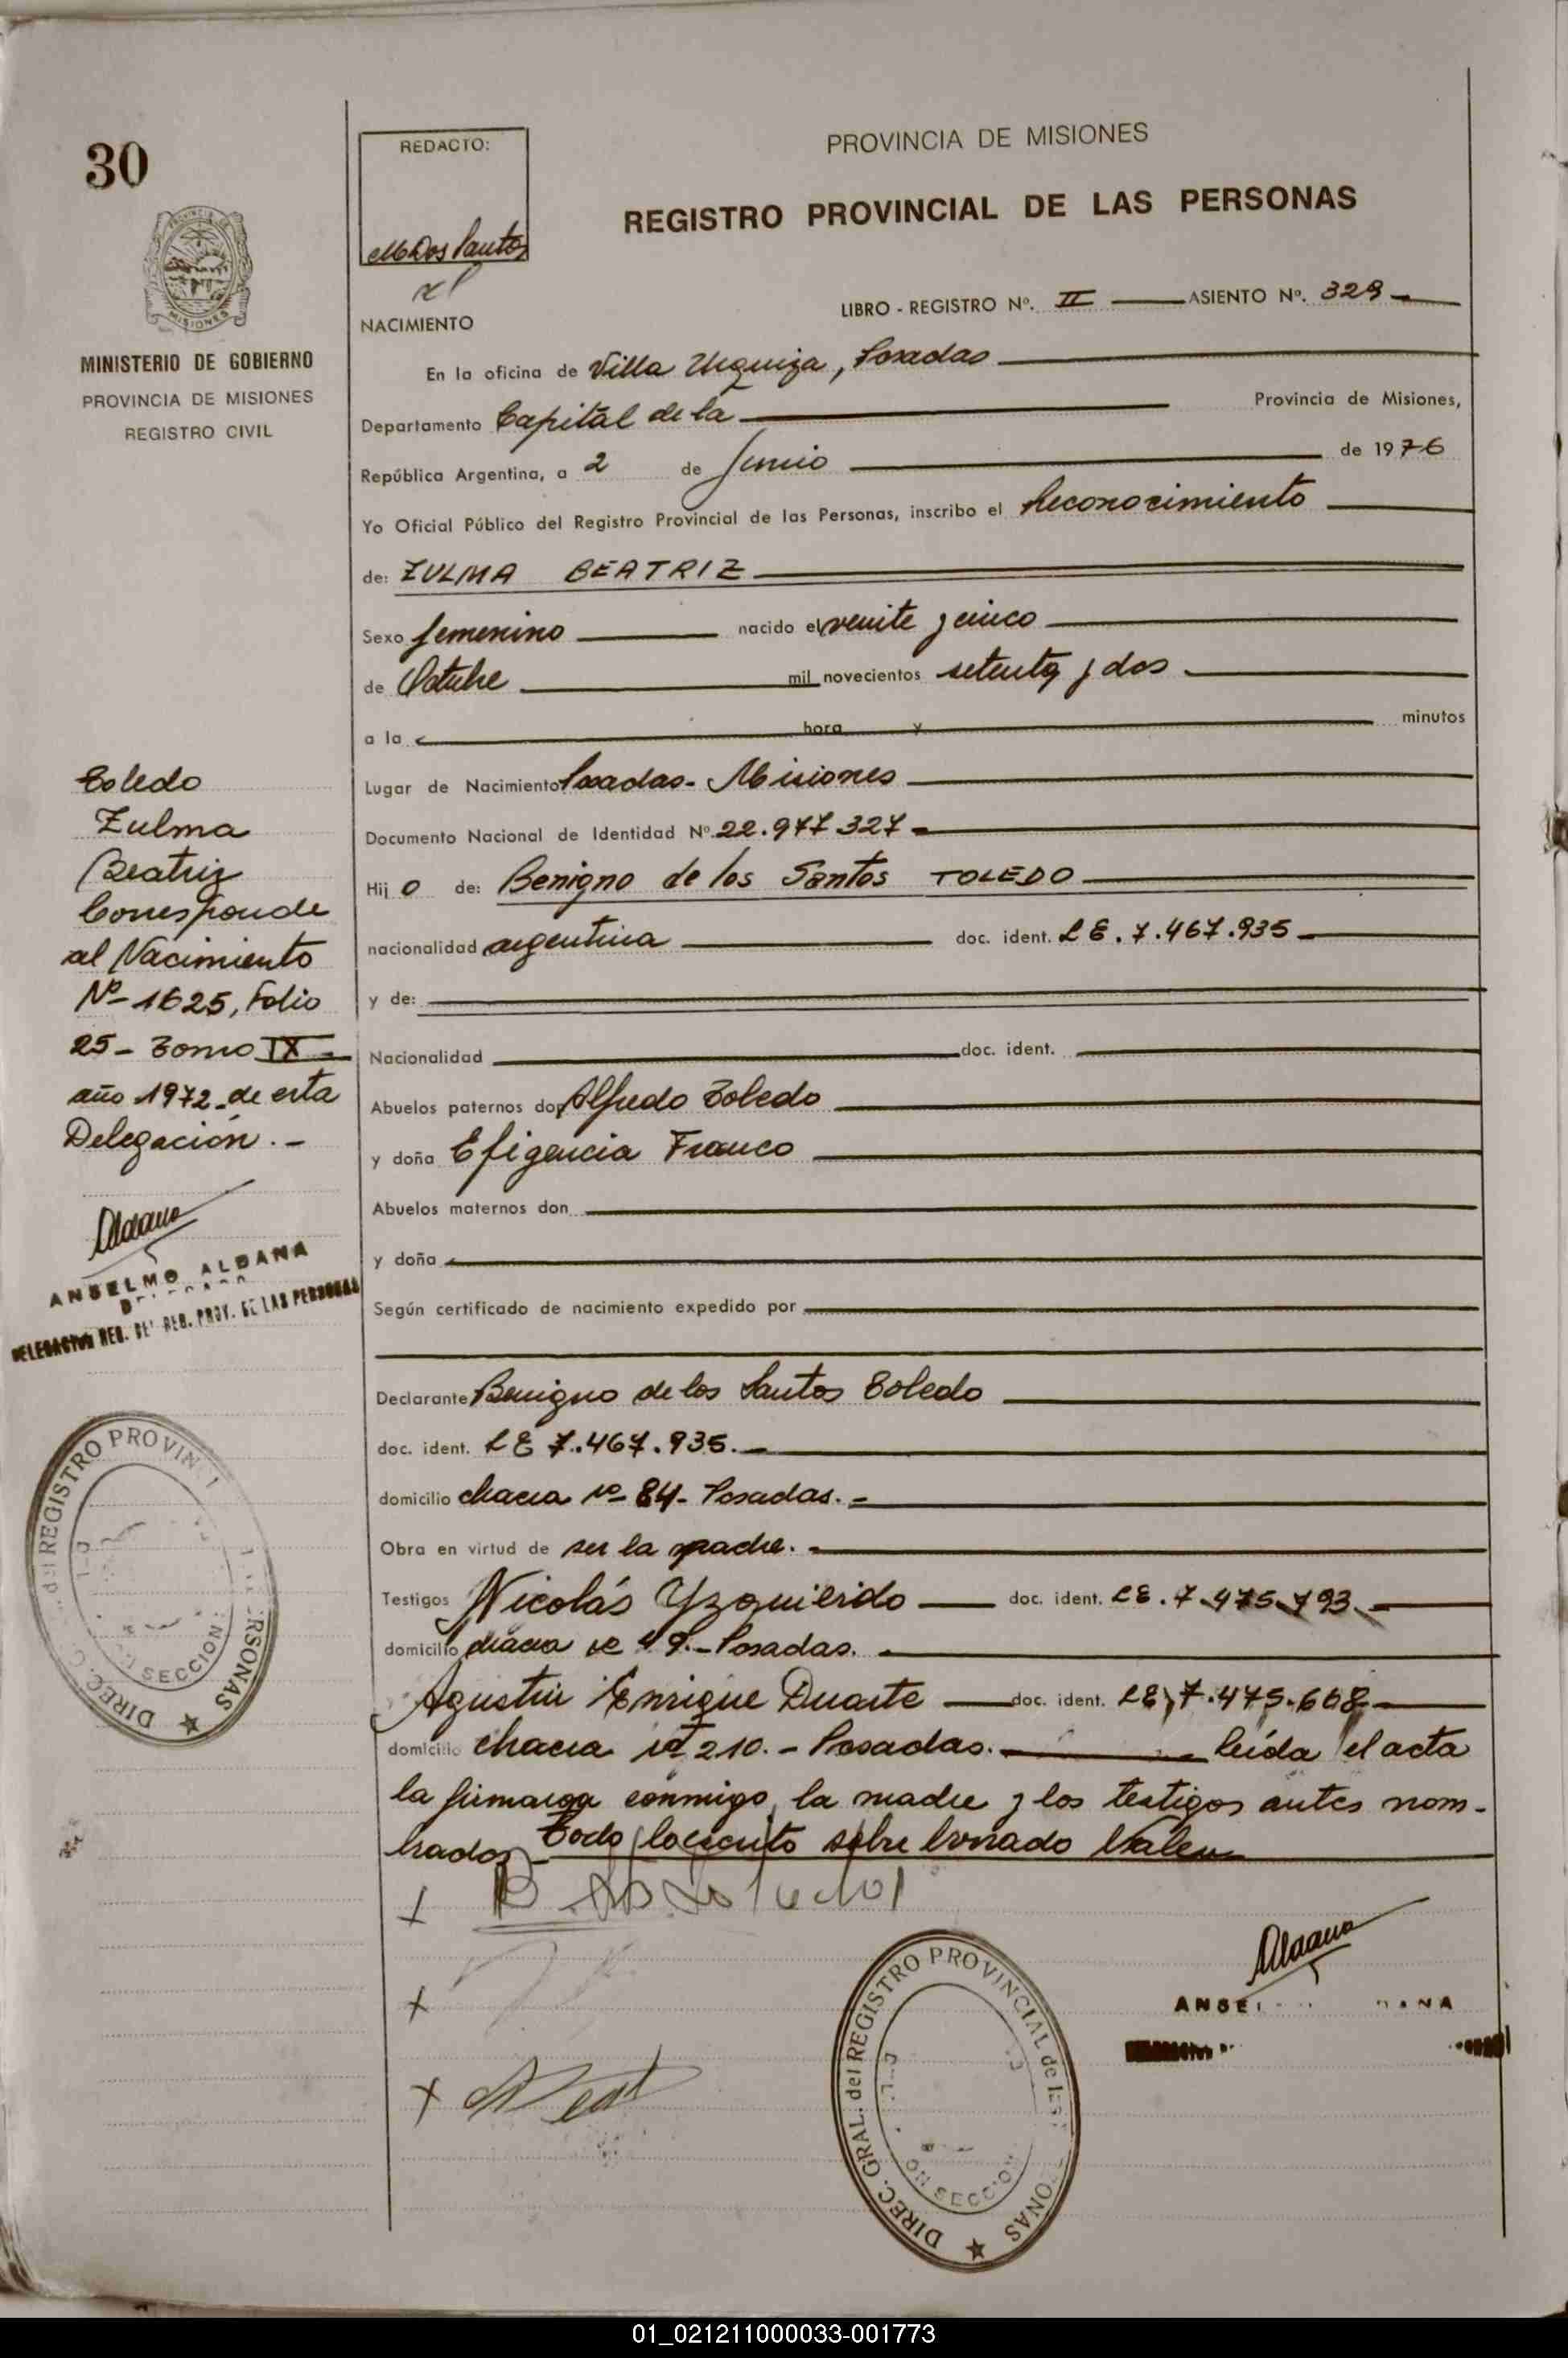 30
MINISTERIO DE GOBIERNO
PROVINCIA DE MISIONES
REGISTRO CIVIL
REDACTO:
M Dos Santos
PROVINCIA DE MISIONES
REGISTRO PROVINCIAL DE LAS PERSONAS
LIBRO - REGISTRO Nº. II ASIENTO Nº. 329
NACIMIENTO
En la oficina de Villa Urquiza, Posadas
Departamento Capital de la Provincia de Misiones,
República Argentina, a 2 de Junio de 1976
Yo Oficial Público del Registro Provincial de las Personas, inscribo el Reconocimiento
de: ZULMA BEATRIZ
Sexo femenino nacido el veinte y cinco
de Octubre mil novecientos setenta y dos
a la hora y minutos
Lugar de Nacimiento Posadas - Misiones
Documento Nacional de Identidad Nº 22.977.327
Hij o de: Benigno de los Santos TOLEDO
nacionalidad argentina doc. ident. LE. 7.467.935
y de:
Nacionalidad doc. ident.
Abuelos paternos don Alfredo Toledo
y doña Efigencia Franco
Abuelos maternos don
y doña
Según certificado de nacimiento expedido por
Declarante Benigno de los Santos Toledo
doc. ident. LE 7.467.935.
domicilio chacra nº 84 - Posadas.
Obra en virtud de ser la madre.
Testigos Nicolás Yzquierdo doc. ident. LE. 7.475.793
domicilio chacra nº 49. - Posadas.
Agustín Enrique Duarte doc. ident. LE 7.475.668
domicilio chacra nº 210. - Posadas. leída el acta
la firmaron conmigo, la madre y los testigos antes nom-
brados - Todo lo escrito sobre borrado Vale
Toledo
Zulma
Beatriz
Corresponde
al Nacimiento
Nº 1625, Folio
25 - Tomo IX -
año 1972 de esta
Delegación. -
Aldana
ANSELMO ALDANA
DELEGADO
DELEGACION REG. DEL REG. PROV. DE LAS PERSONAS
DIREC. G del REGISTRO PROVINCI RSONAS
SECCION
Aldana
DIREC. GRAL. del REGISTRO PROVINCIAL de las ONAS
SECCION
01_021211000033-001773